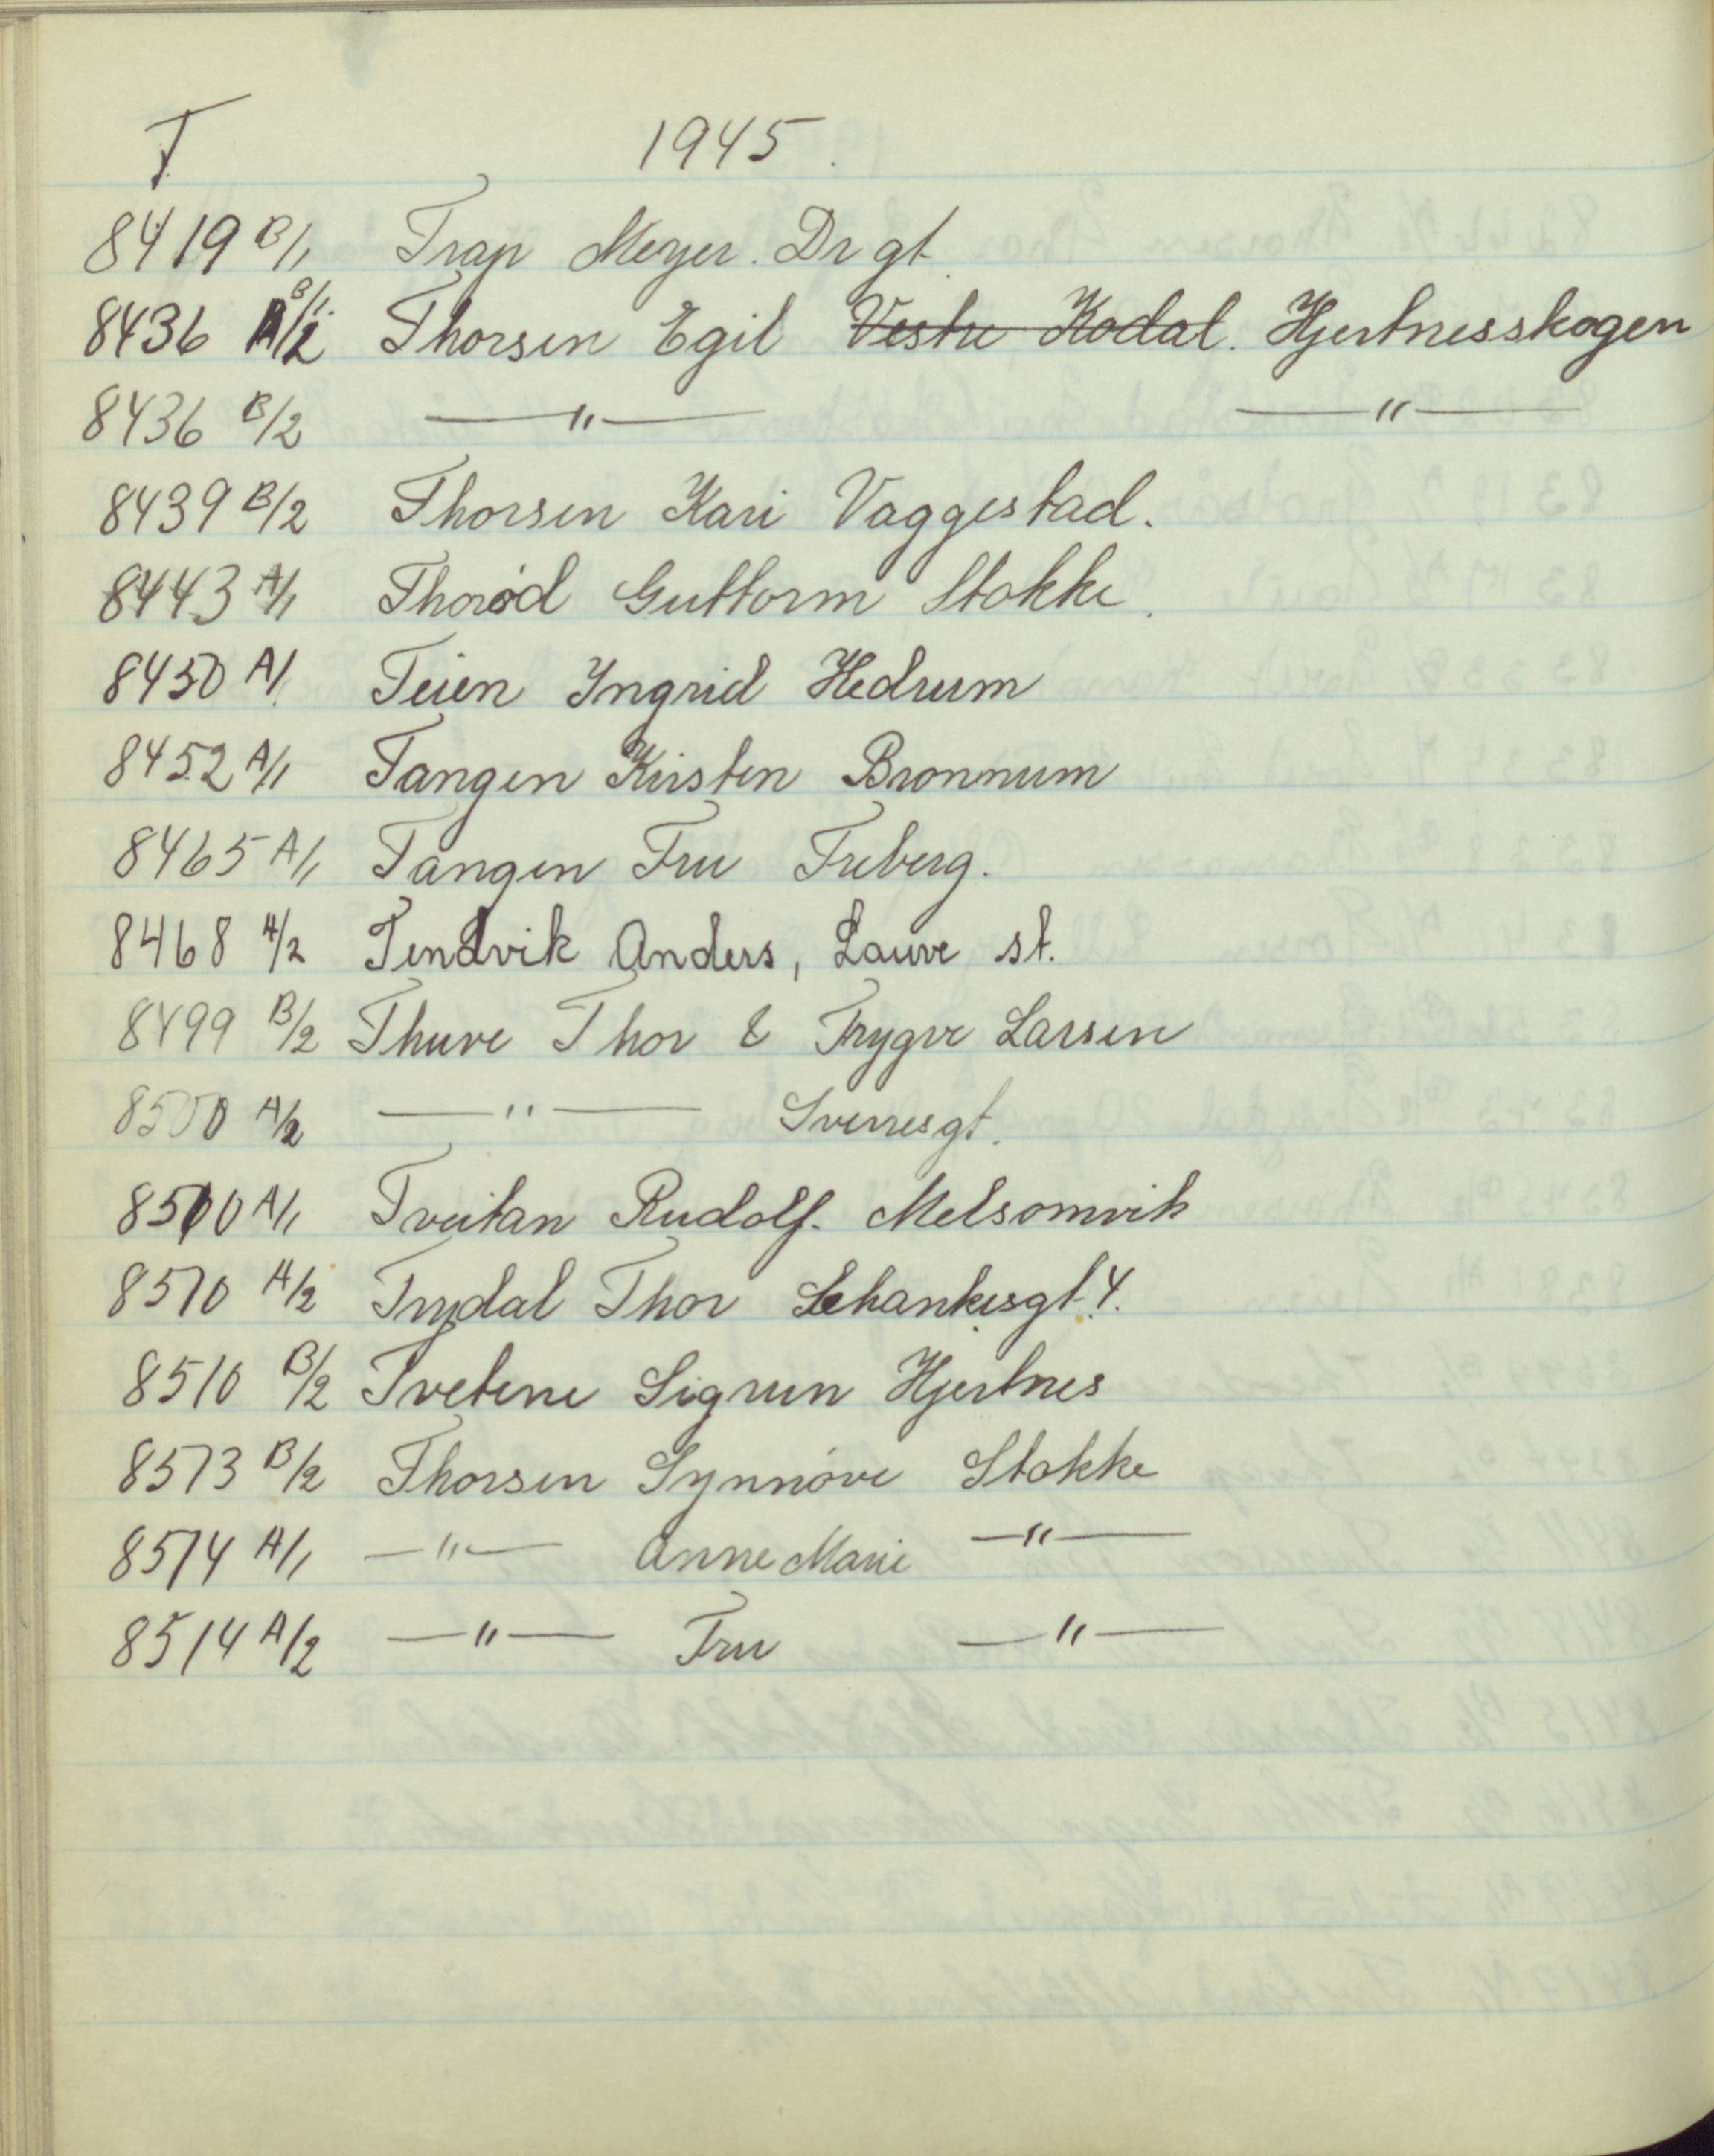 T 1945.
8419 B/1 Trap Meyer. Dr gt.
8436 A/2 B/1. Thorsen Egil Vestre Kodal. Hjertnesskogen
8436 B/2 —"— —"—
8439 B/2 Thorsen Kari Vaggestad.
8443 A/1 Thorød Guttorm Stokke.
8450 A/1 Teien Yngrid Hedrum
8452 A/1 Tangen Kirsten Bronnum
8465 A/1 Tangen Fru Freberg.
8468 A/2 Tendvik Anders, Lauve st.
8499 B/2 Thuve Thor & Trygve Larsen
8500 A/2 —"— Sverresgt.
8510 A/1 Tveitan Rudolf. Melsomvik
8510 A/2 Trydal Thor Schankesgt. 4.
8510 B/2 Tvetene Sigrun Hjertnes
8513 B/2 Thorsen Synnóve Stokke
8514 A/1 —"— Anne Marie —"—
8514 A/2 —"— Fru —"—